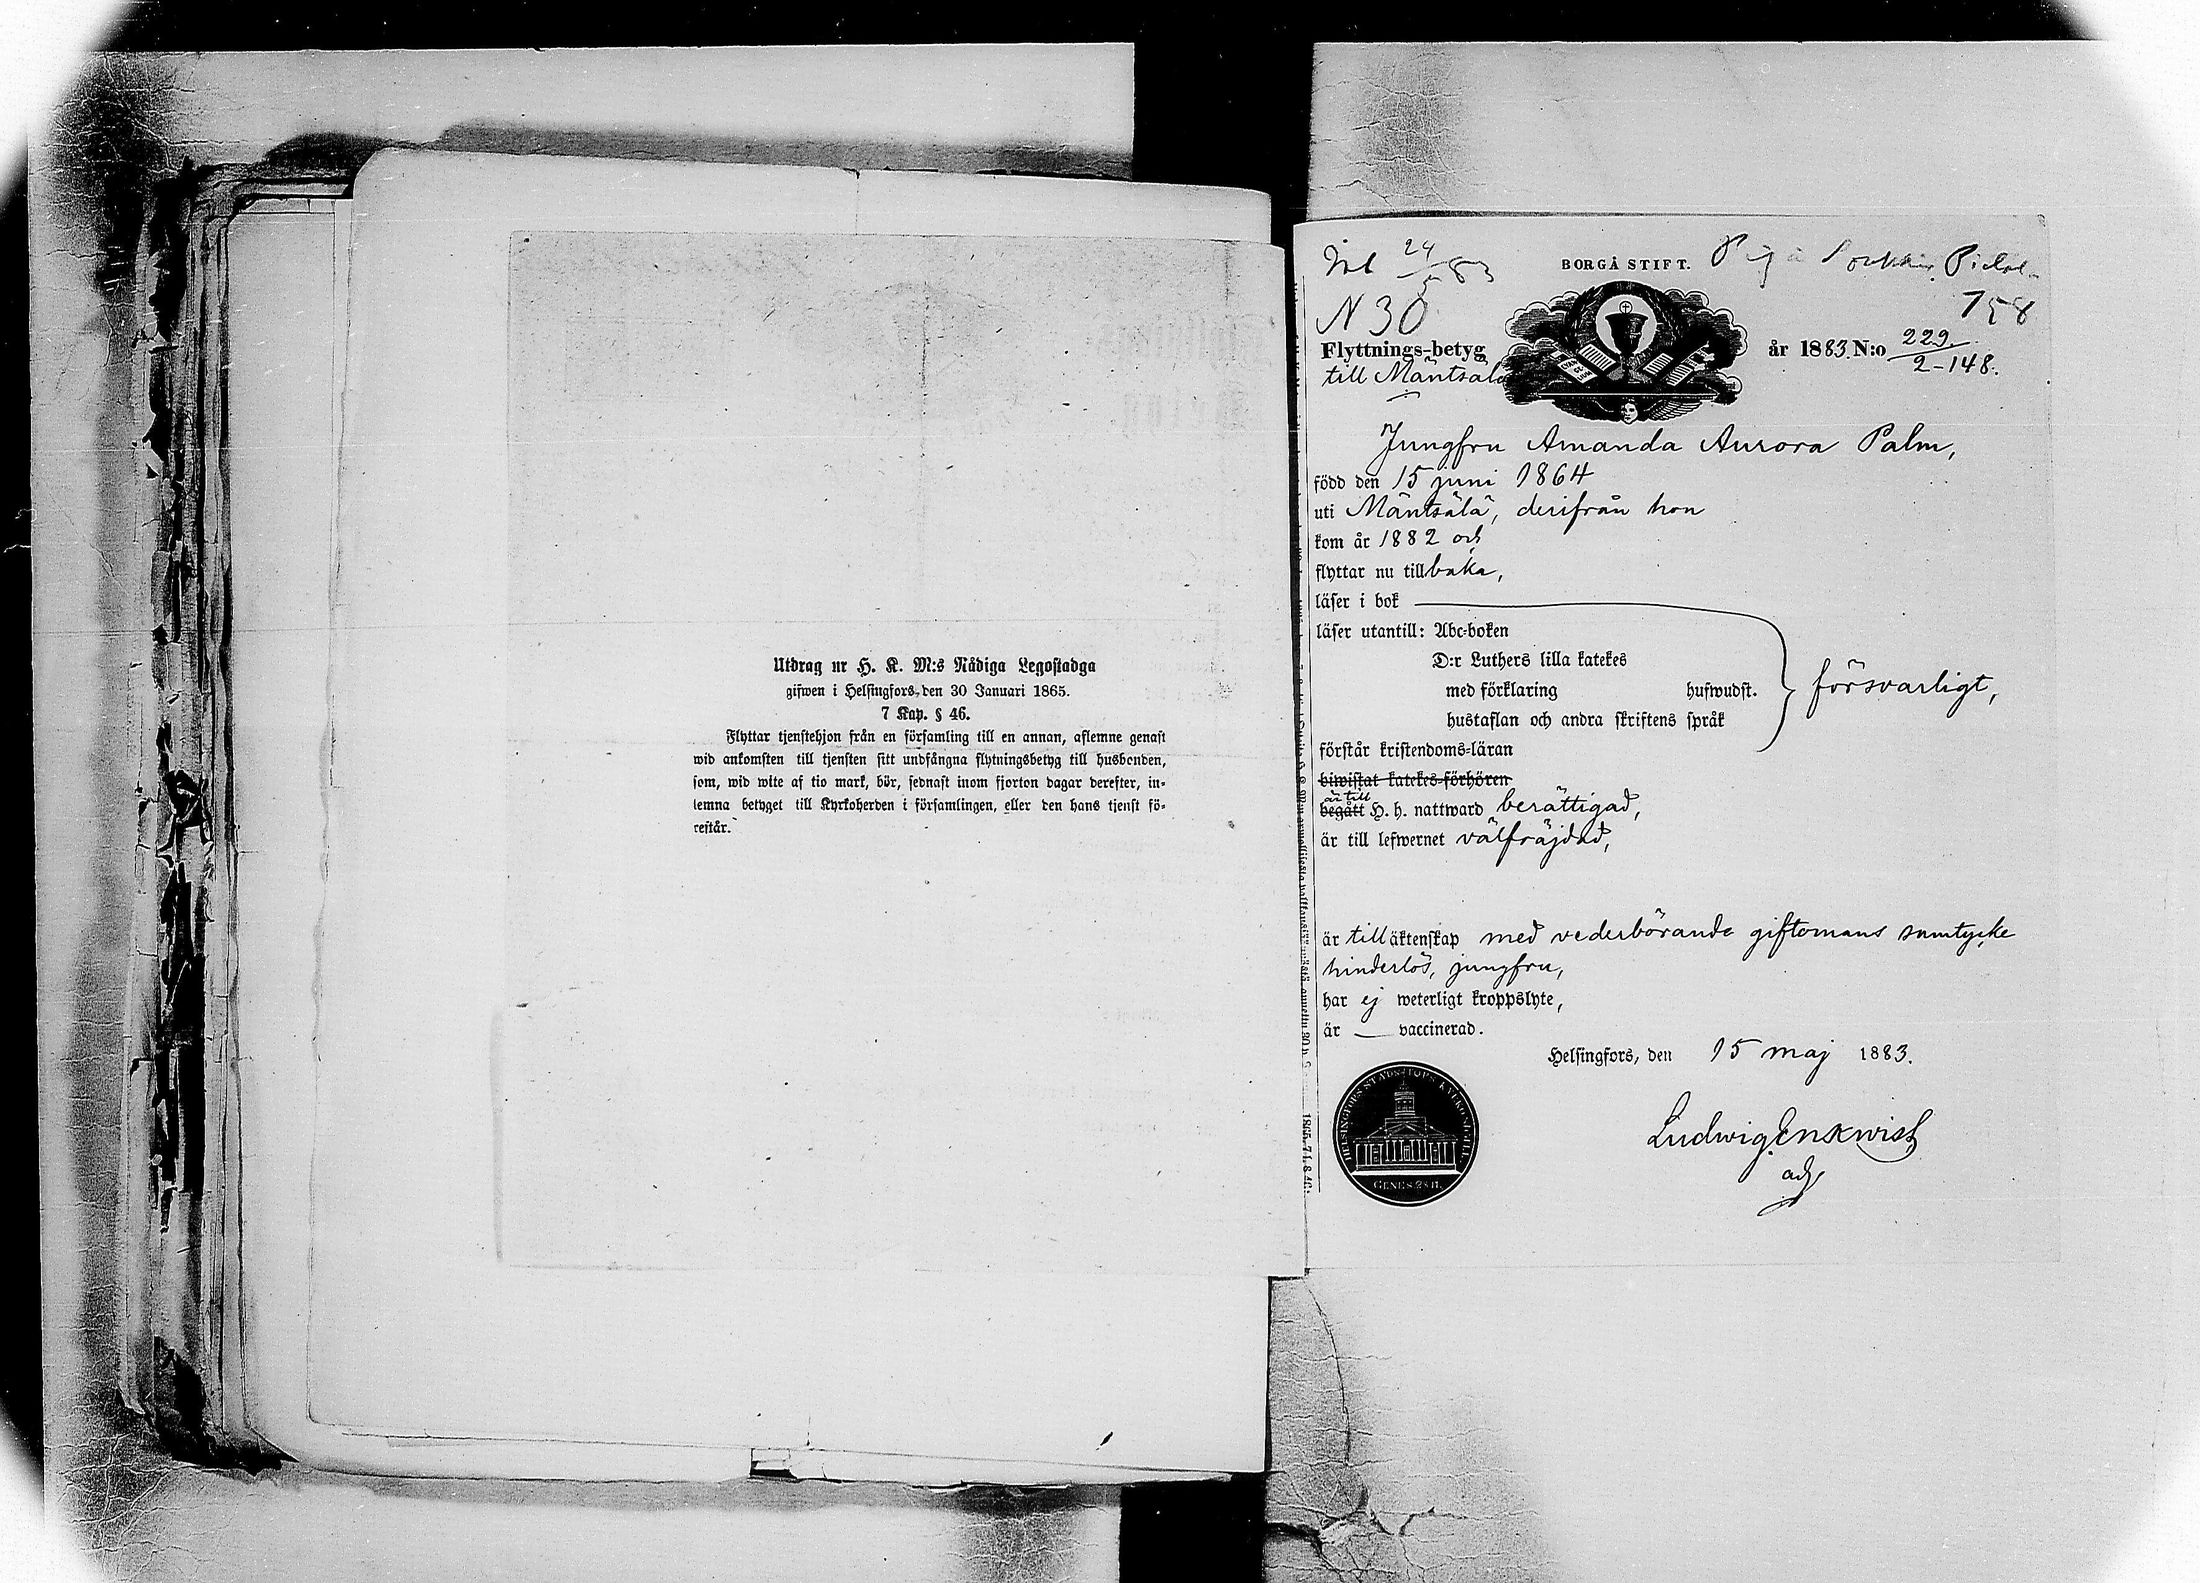 Utdrag ur H. K. M:s Nådiga Legostadga
gifwen i Helsingfors, den 30 Januari 1865.
7 Kap. § 46.
Flyttar tjenstehjon från en församling till en annan, aflemne genast
wid ankomsten till tjensten sitt undfångna flytningsbetyg till husbonden,
som, wid wite af tio mark, bör, sednast inom fjorton dagar derefter, in-
lemna betyget till Kyrkoherden i församlingen, eller den hans tjenst fö-
restår.
24/5 83
BORGÅ STIFT.
N 30
758
Flyttnings-betyg
år 1883 N:o 229.
2-148.
till Mäntsälä
Jungfru Amanda Aurora Palm,
född den 15 juni 1864
uti Mäntsälä, derifrån hon
kom år 1882 och
flyttar nu tillbaka,
läser i bok
läser utantill: Abc-boken
D:r Luthers lilla katekes
med förklaring hufwudst.
försvarligt,
hustaflan och andra skriftens språk
förstår kristendoms-läran
biwistat katekes-förhören
är till
begått H. h. nattward berättigad,
är till lefwernet välfräjdad,
är till äktenskap med vederbörande giftomans samtycke
hinderlös, jungfru,
har ej weterligt kroppslyte,
är — vaccinerad.
Helsingfors, den 15 maj 1883.
Ludwig Enkwist
adj